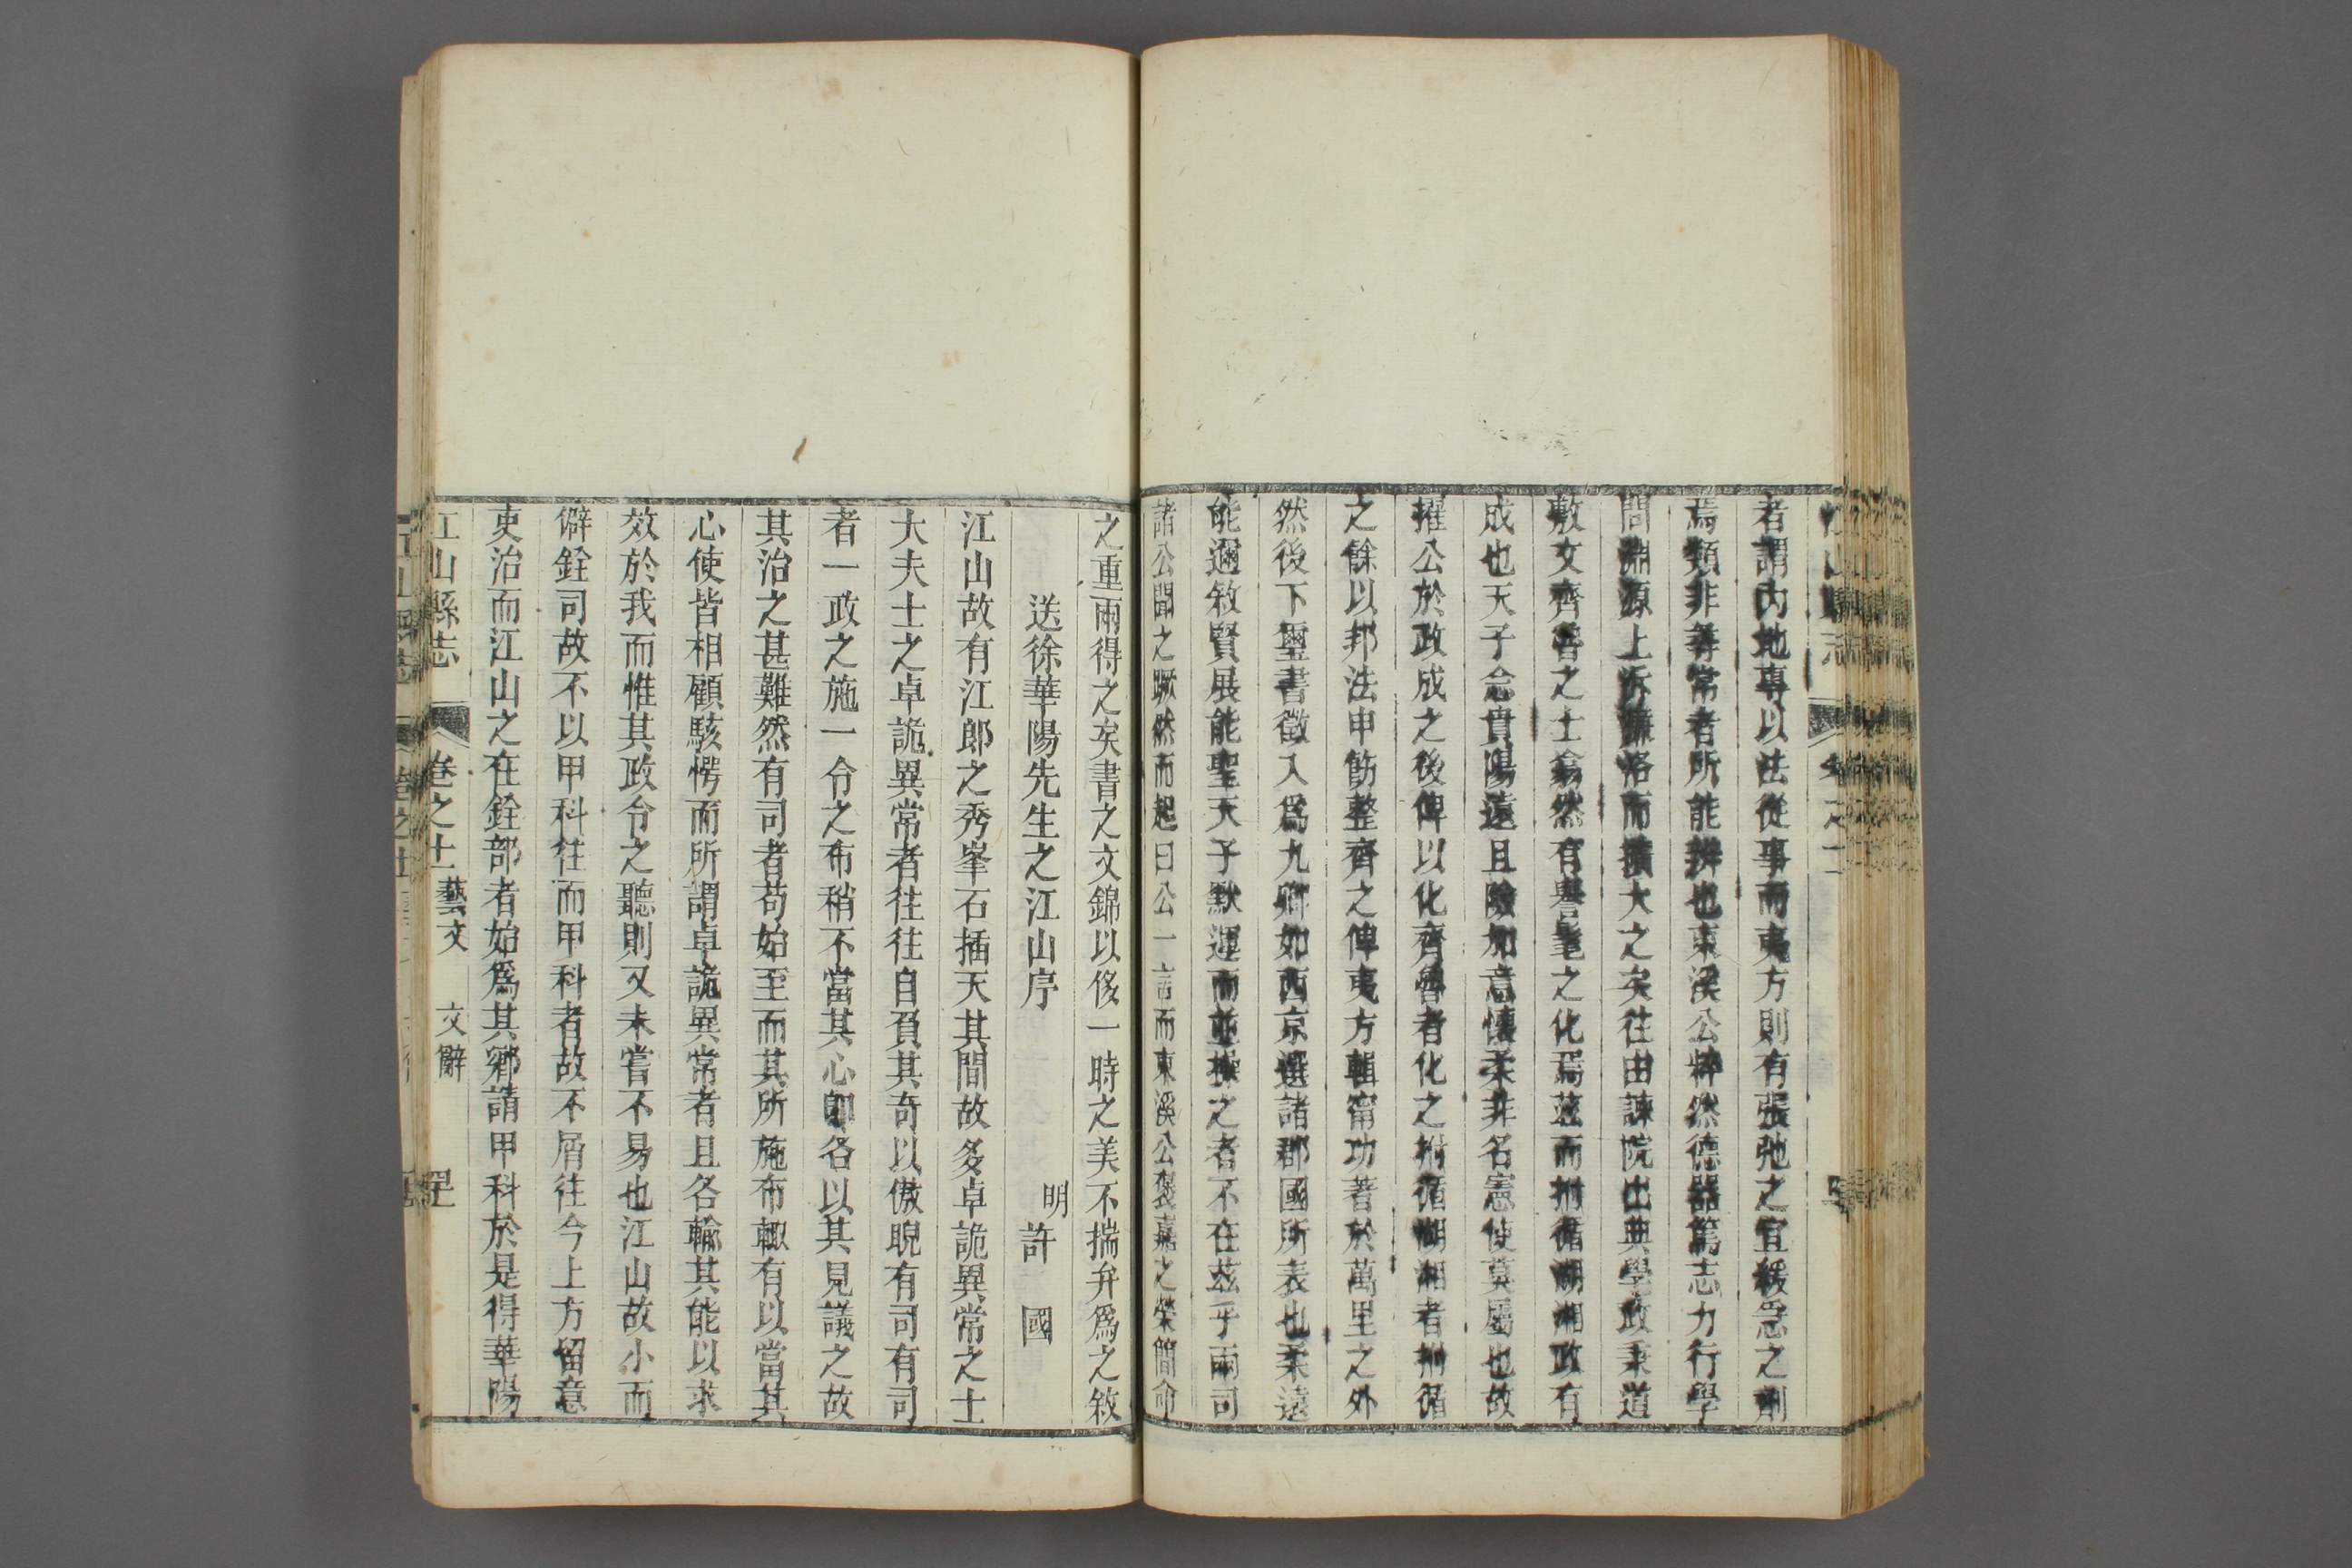 者謂內地專以法從事而夷方則有張弛之宜緩急之劑
焉類非尋常者所能辨也東溪公粹然德器篤志力行學
問淵源上泝濂洛而擴大之矣往由諫院出典學政秉道
敷文齊魯之士翕然有譽髦之化焉茲而拊循湖湘政有
成也天子念貴陽遠且險加意懷柔非名憲使莫屬也故
擢公於政成之後俾以化齊魯者化之拊循湖湘者拊循
之餘以邦法申飭整齊之俾夷方輯甯功著於萬里之外
然後下璽書徵入爲九卿如西京選諸郡國所表也柔遠
能邇敘賢展能聖天子默運而並操之者不在茲乎兩司
諸公聞之蹶然而起曰公一言而東溪公褒嘉之榮簡命
之重兩得之矣書之文錦以侈一時之美不揣弁爲之敘
送徐華陽先生之江山序
明 許 國
江山故有江郎之秀峯石插天其間故多卓詭異常之士
大夫士之卓詭異常者往往自負其奇以傲睨有司有司
者一政之施一令之布稍不當其心卽各以其見議之故
其治之甚難然有司者苟始至而其所施布輒有以當其
心使皆相顧駭愕而所謂卓詭異常者且各輸其能以求
效於我而惟其政令之聽則又未嘗不易也江山故小而
僻銓司故不以甲科往而甲科者故不屑往今上方留意
吏治而江山之在銓部者始爲其鄉請甲科於是得華陽
江山縣志 卷之十一 藝文 文辭